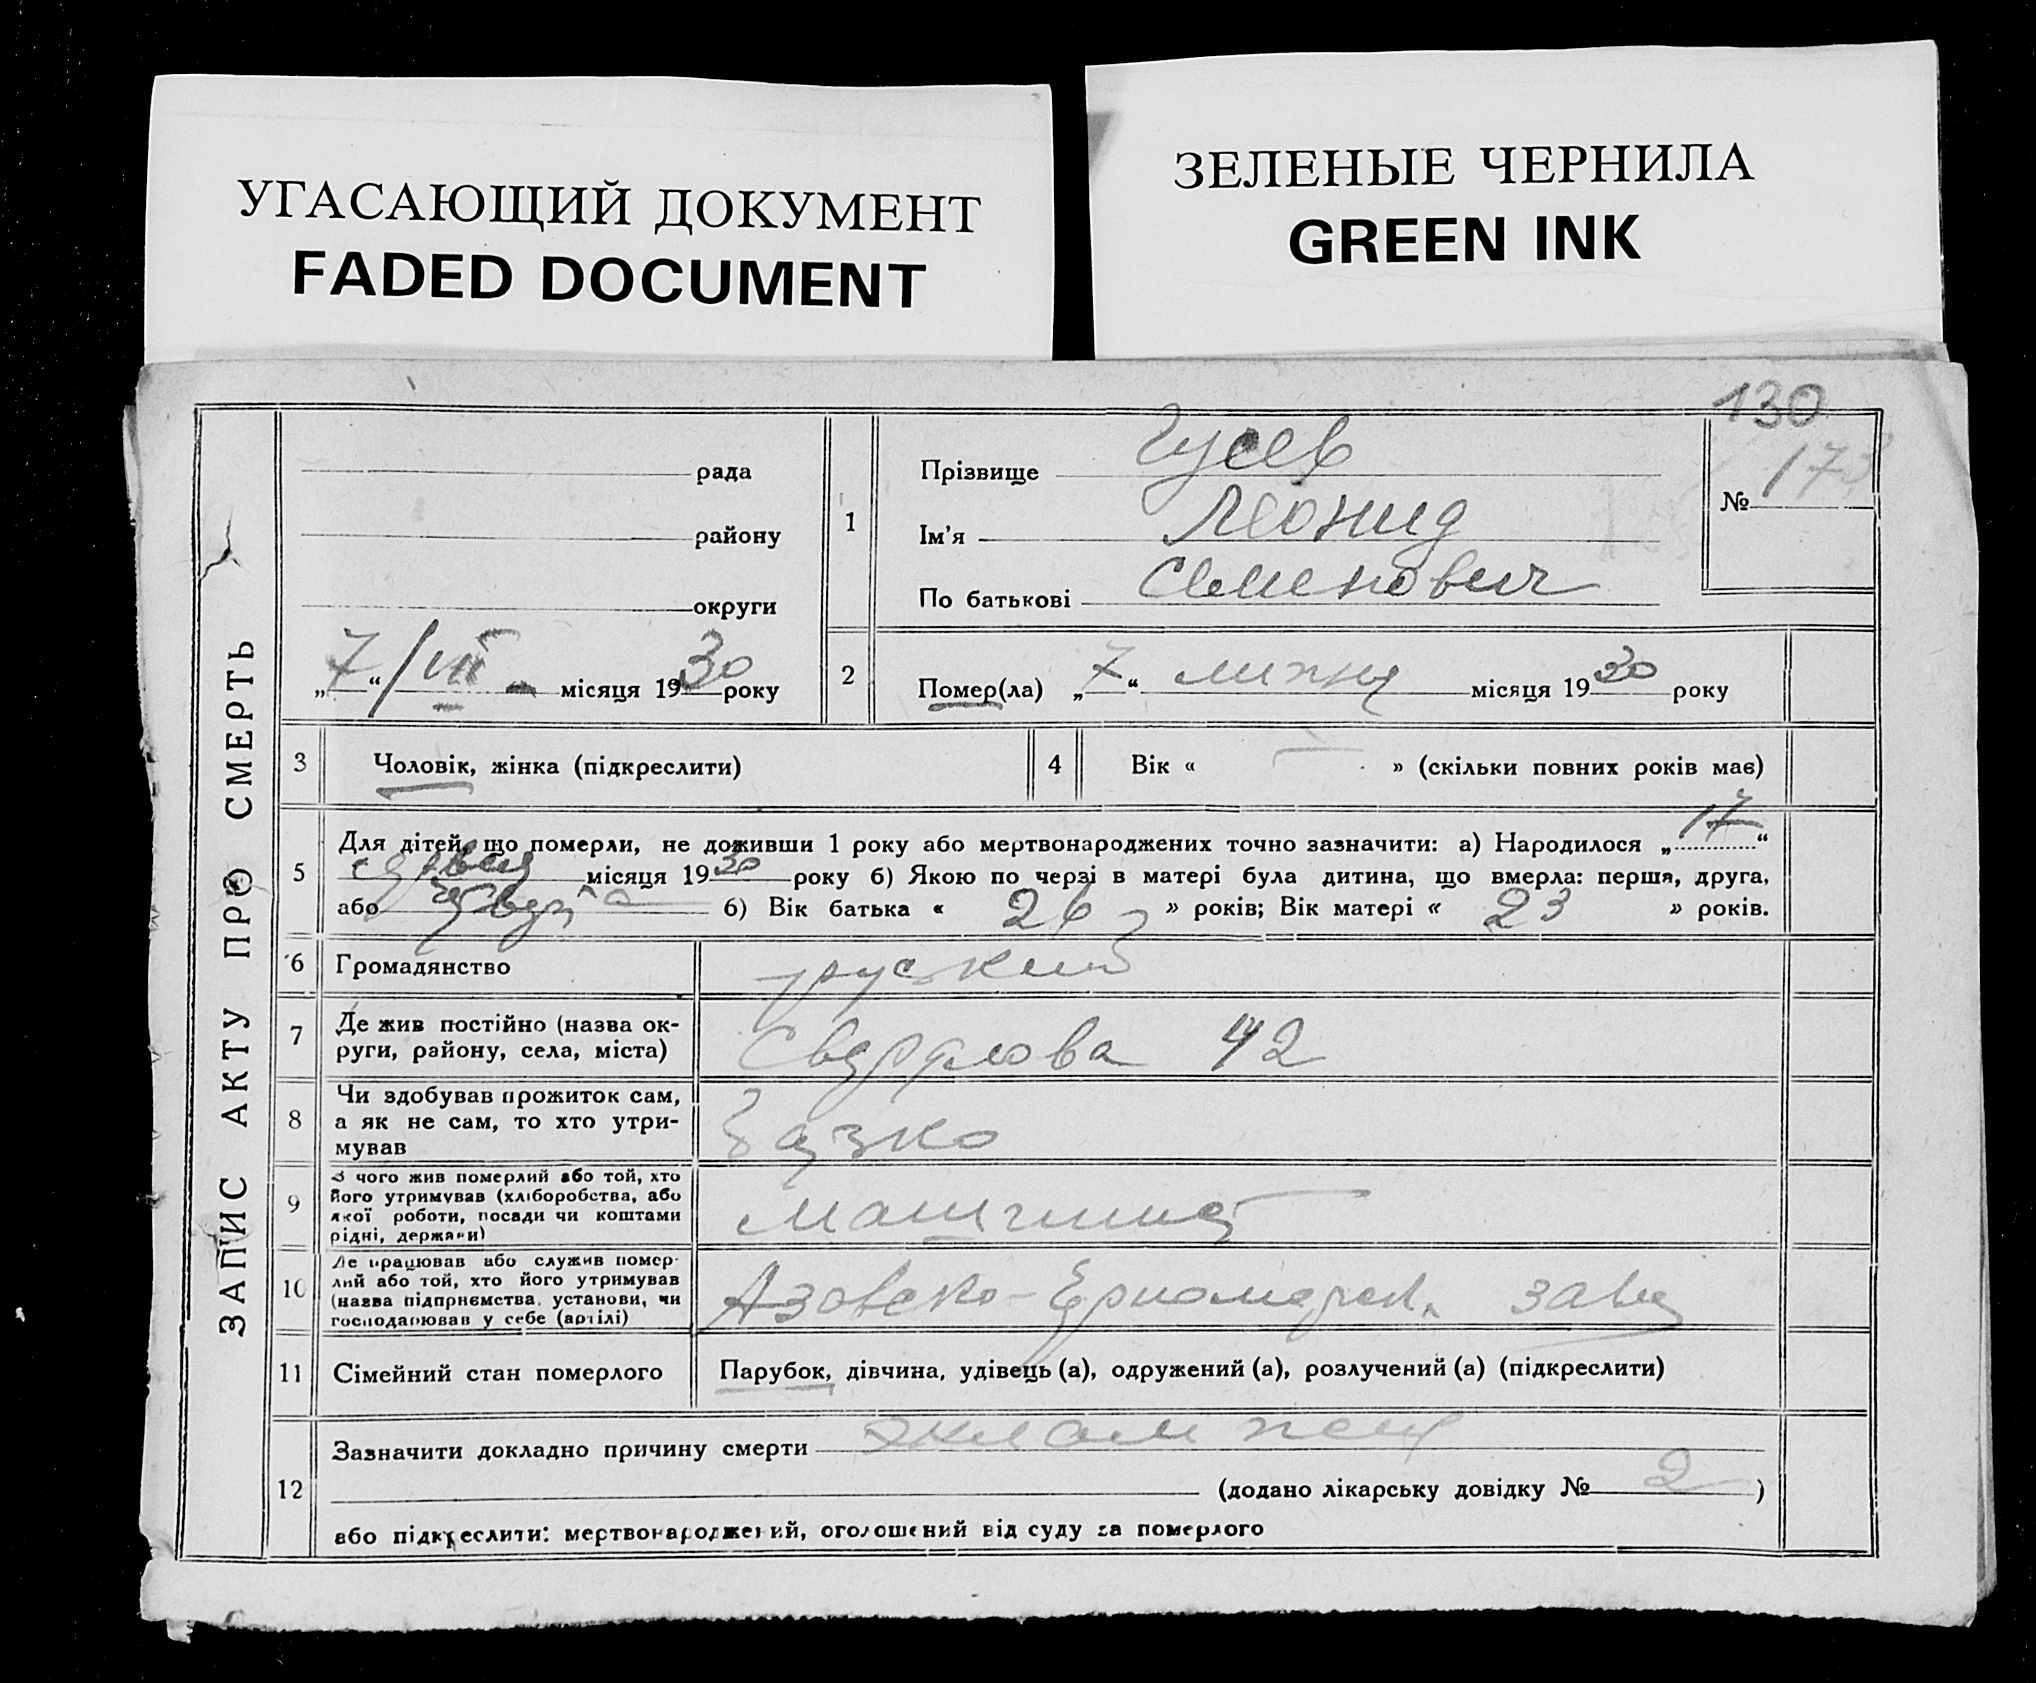 УГАСАЮЩИЙ ДОКУМЕНТ
FADED DOCUMENT
ЗЕЛЕНЫЕ ЧЕРНИЛА
GREEN INK
130
ЗАПИС АКТУ ПРО СМЕРТЬ
рада
району
округи
„7“/VII місяця 1930 року
1
Прізвище Гусев
Ім'я Леонид
По батькові Семенович
№ 17
2
Помер(ла) „7“ липня місяця 1930 року
3 Чоловік, жінка (підкреслити)
4 Вік « — » (скільки повних років має)
5 Для дітей, що померли, не доживши 1 року або мертвонароджених точно зазначити: а) Народилося „17“
червня місяця 1930 року б) Якою по черзі в матері була дитина, що вмерла: перша, друга,
або б) Вік батька « 26 » років; Вік матері « 23 » років.
6 Громадянство руский
7 Де жив постійно (назва ок-
руги, району, села, міста)
Свердлова 42
8 Чи здобував прожиток сам,
а як не сам, то хто утри-
мував
Батько
9 З чого жив померлий або той, хто
його утримував (хліборобства, або
якої роботи, посади чи коштами
рідні, держави)
10 Де працював або служив помер-
лий або той, хто його утримував
(назва підприємства, установи, чи
господарював у себе (артілі)
Азовско-
11 Сімейний стан померлого
Парубок, дівчина, удівець (а), одружений (а), розлучений (а) (підкреслити)
12
Зазначити докладно причину смерти эклампсия
(додано лікарську довідку № 2)
або підкреслити: мертвонароджений, оголошений від суду за померлого